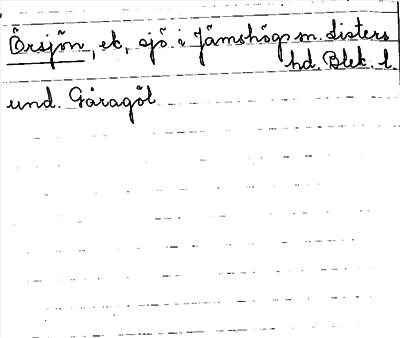 Örsjön, ek, sjö i Jämshögs m. Listers
hd. Blek. l.
und. Gåragöl